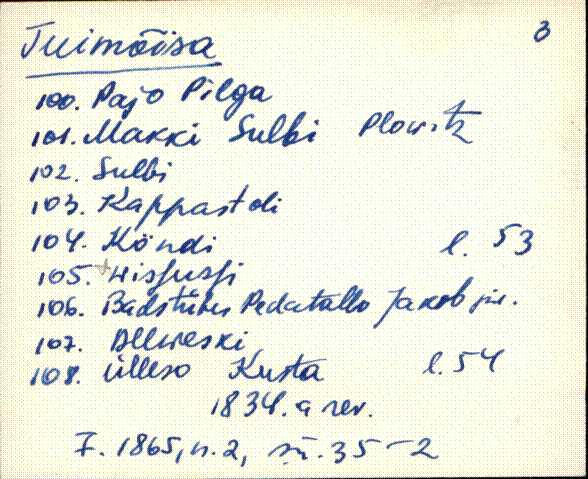 3
Tuimõisa
100. Pajo Pilga
101. Makki Sulbi Plowitz
102. Sulbi
103. Kappastdi
104. Köndi l. 53
105. Wisjusji
106. Badstüber Pedatallo Jakob jun.
107. Allweski
108. Ülleso Kusta l. 54
1834. a rev.
F. 1865, n. 2, sü. 35-2